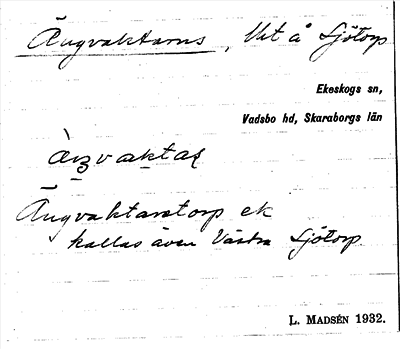 Ängvaktarns, Ut å Sjötorp
Ekeskogs sn,
Vadsbo hd, Skaraborgs län
Ängvaktaretorp ek
kallas även Västra Sjötorp
L. MADSÉN 1932.